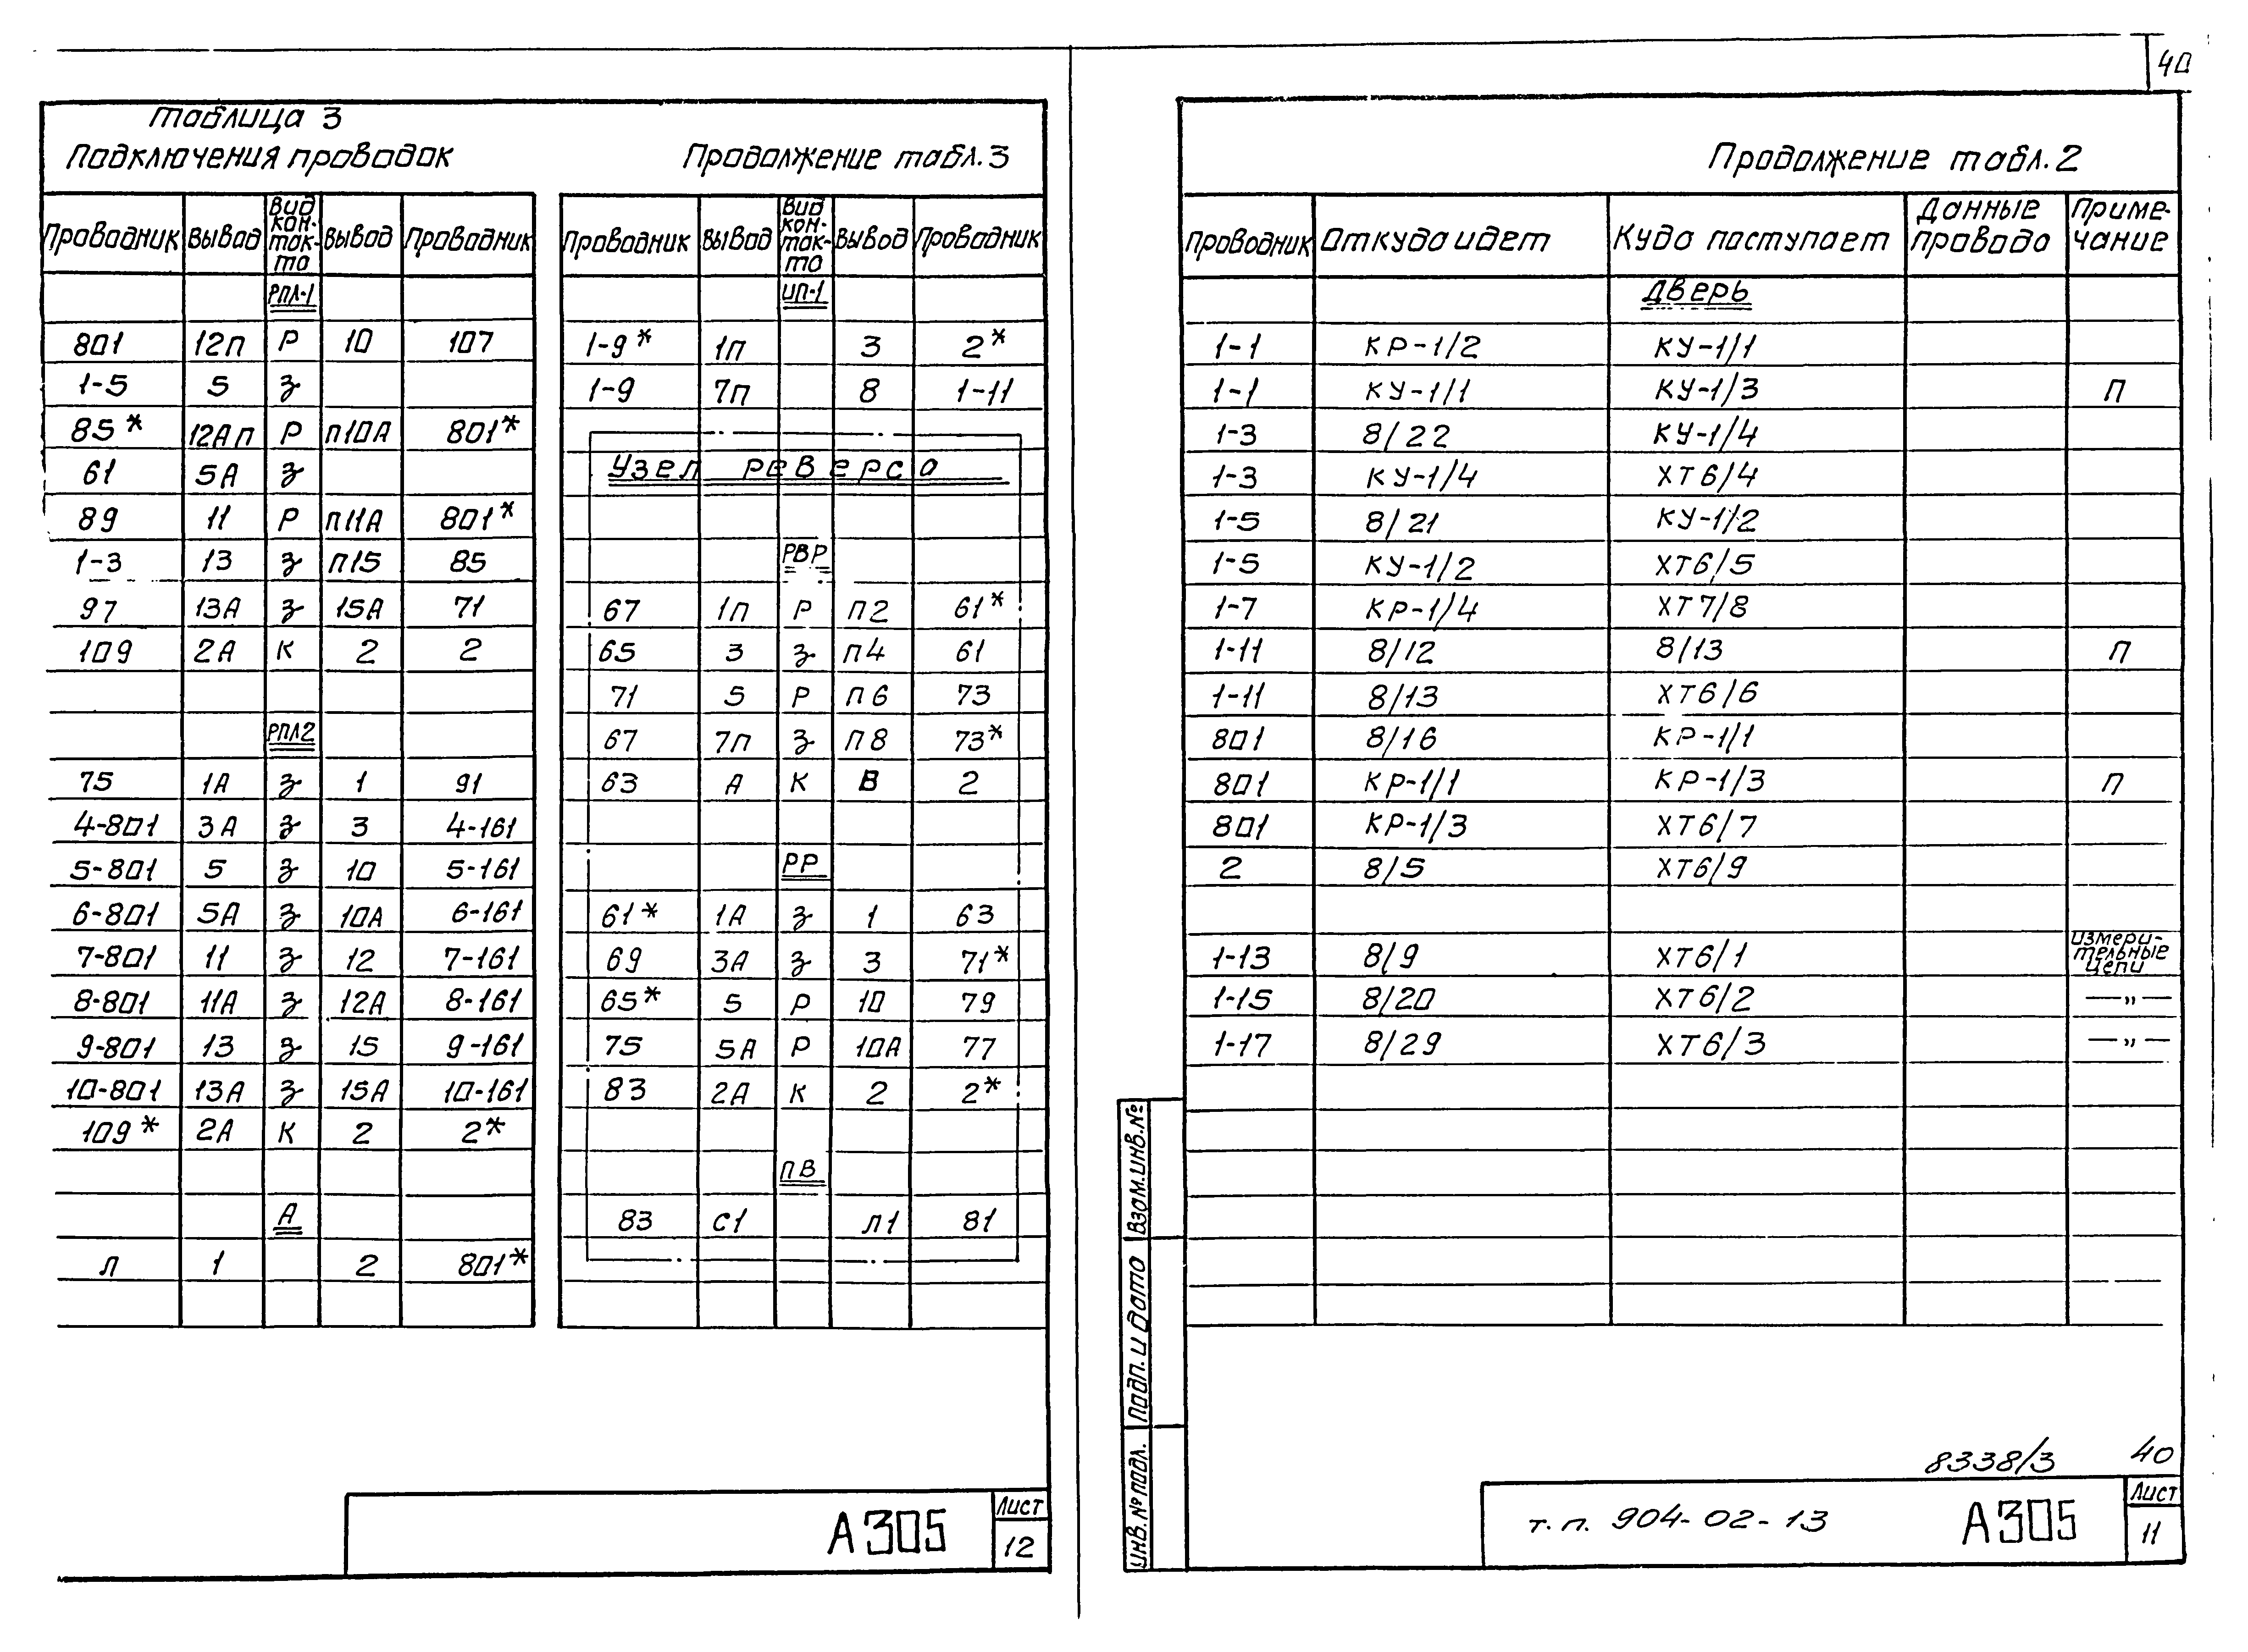 40
Таблица 3
Подключения проводок
Проводник Вывод Вид контакта Вывод Проводник
РПЛ-1
801 12п Р 10 107
1-5 5 З
85* 12Ап Р п10А 801*
61 5А З
89 11 Р п11А 801*
1-3 13 З п15 85
97 13А З 15А 71
109 2А К 2 2
РПЛ2
75 1А З 1 91
4-801 3А З 3 4-161
5-801 5 З 10 5-161
6-801 5А З 10А 6-161
7-801 11 З 12 7-161
8-801 11А З 12А 8-161
9-801 13 З 15 9-161
10-801 13А З 15А 10-161
109* 2А К 2 2*
А
Л 1 2 801*
Продолжение табл.3
Проводник Вывод Вид контакта Вывод Проводник
ИП-1
1-9* 1п 3 2*
1-9 7п 8 1-11
Узел реверса
РВР
67 1п Р п2 61*
65 3 З п4 61
71 5 Р п6 73
67 7п З п8 73*
63 А К В 2
РР
61* 1А З 1 63
69 3А З 3 71*
65* 5 Р 10 79
75 5А Р 10А 77
83 2А К 2 2*
ПВ
83 С1 Л1 81
А305
Лист
12
Продолжение табл.2
Проводник Откуда идет Куда поступает Данные провода Примечание
Дверь
1-1 КР-1/2 КУ-1/1
1-1 КУ-1/1 КУ-1/3 П
1-3 8/22 КУ-1/4
1-3 КУ-1/4 ХТ6/4
1-5 8/21 КУ-1/2
1-5 КУ-1/2 ХТ6/5
1-7 КР-1/4 ХТ7/8
1-11 8/12 8/13 П
1-11 8/13 ХТ6/6
801 8/16 КР-1/1
801 КР-1/1 КР-1/3 П
801 КР-1/3 ХТ6/7
2 8/5 ХТ6/9
1-13 8/9 ХТ6/1 Измерительные цепи
1-15 8/20 ХТ6/2 —„—
1-17 8/29 ХТ6/3 —„—
Взам.инв.№
Подп. и дата
Инв.№ подл.
8338/3 40
т.п. 904-02-13
А305
Лист
11